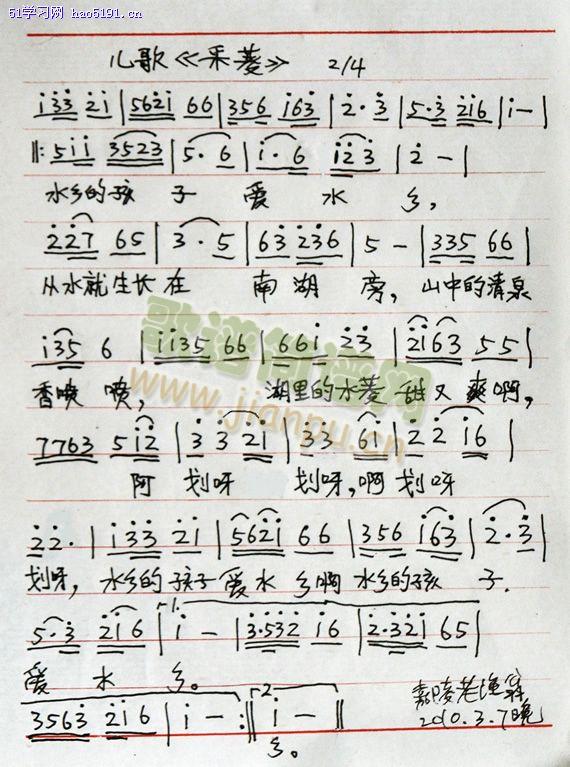 51学习网 hao5191.cn
儿歌《采菱》 2/4
i33 2i | 562i 66 | 356 i63 | 2·3 | 5·3 2i6 | i- |
‖: 5ii 3523 | 5·6 | i·6 | i23 | 2- |
水乡的孩子爱水乡,
227 65 | 3·5 | 63 236 | 5- | 335 66 |
从水就生长在南湖旁,山中的清泉
i35 6 | ii35 66 | 66i 23 | 2i63 55 |
香喷喷,湖里的水菱甜又爽啊,
7763 5i2 | 3 3 2i | 33 6i | 2 2 i6 |
阿划呀划呀,啊划呀
22· | i33 2i | 562i 66 | 356 i63 | 2·3 |
划呀,水乡的孩子爱水乡啊水乡的孩子.
5·3 2i6 | 1. i - | 3·532 i6 | 2·32i 65 |
爱水乡。
3563 2i6 | i - :‖ 2. i - ‖
乡。
嘉陵老渔翁
2010.3.7晚
歌谱简谱网
www.jianpu.cn